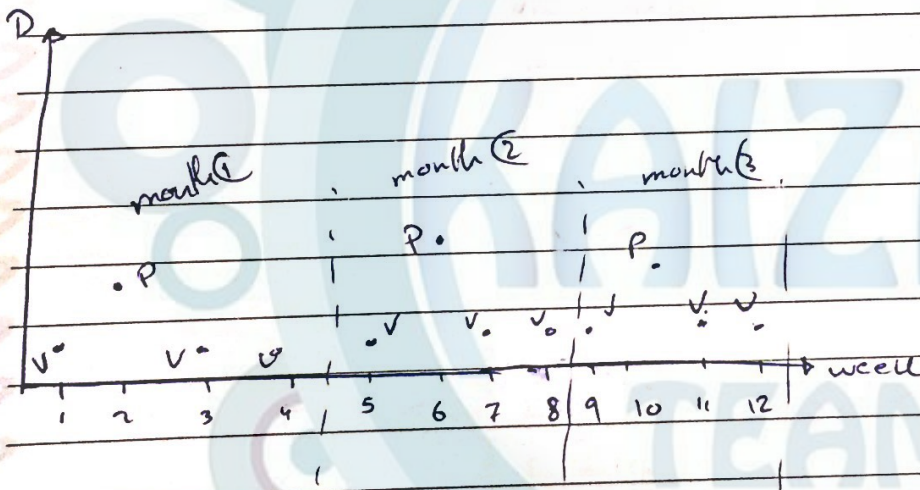 D
month ① month ② month ③
P P P
V V V V V V V V V
week
1 2 3 4 5 6 7 8 9 10 11 12
KAIZ
TEAM